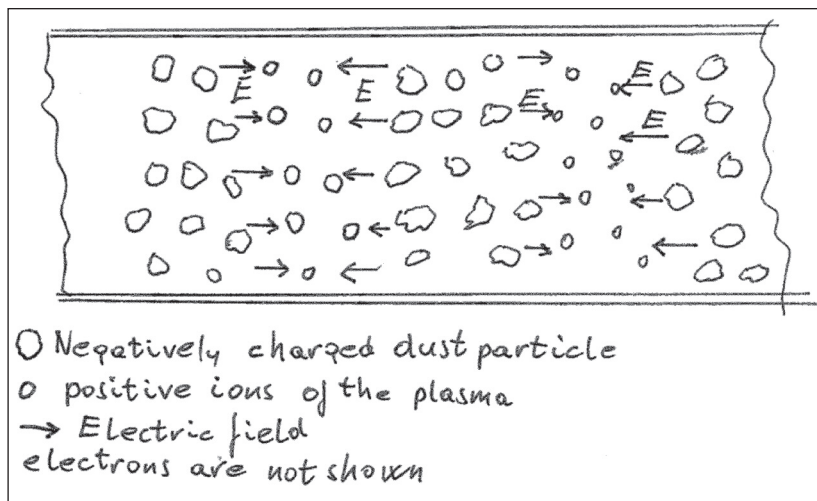 E E E E
E
O Negatively charged dust particle
o positive ions of the plasma
→ Electric field
electrons are not shown